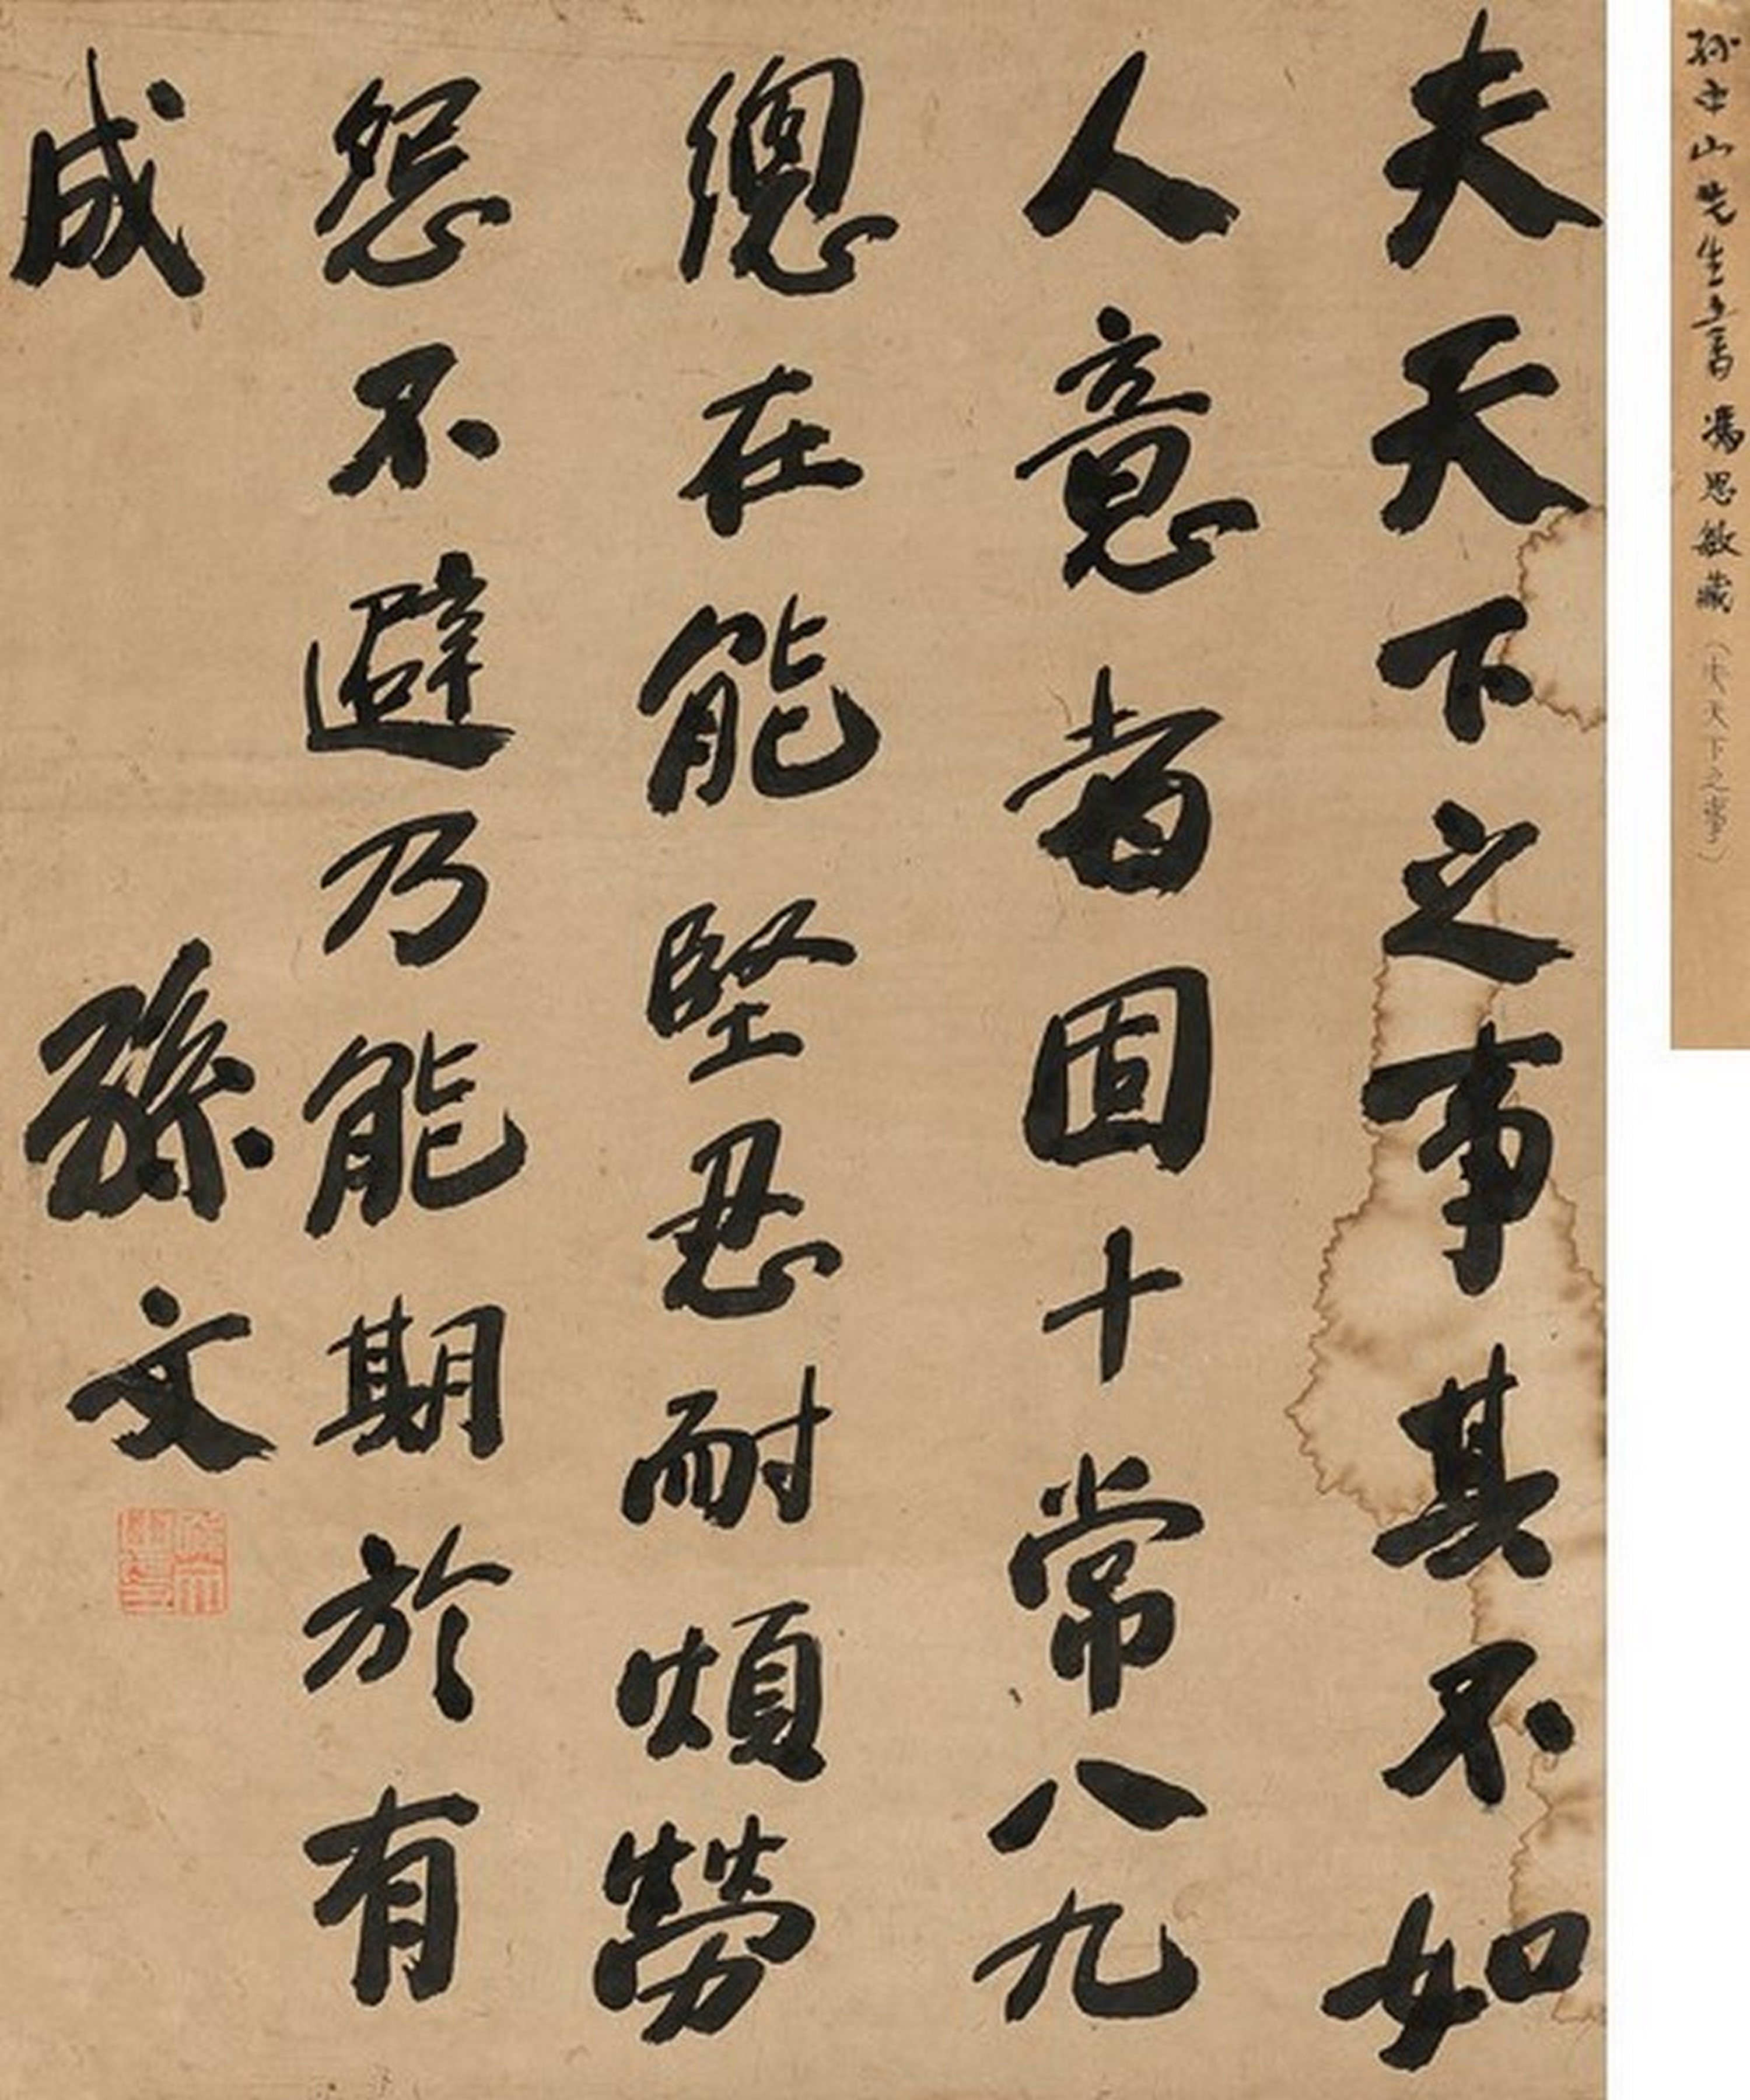 孫中山先生玉書 馮思敏藏（夫天下之事）
夫天下之事其不如
人意者固十常八九
總在能堅忍耐煩勞
怨不避乃能期於有
成
孫文